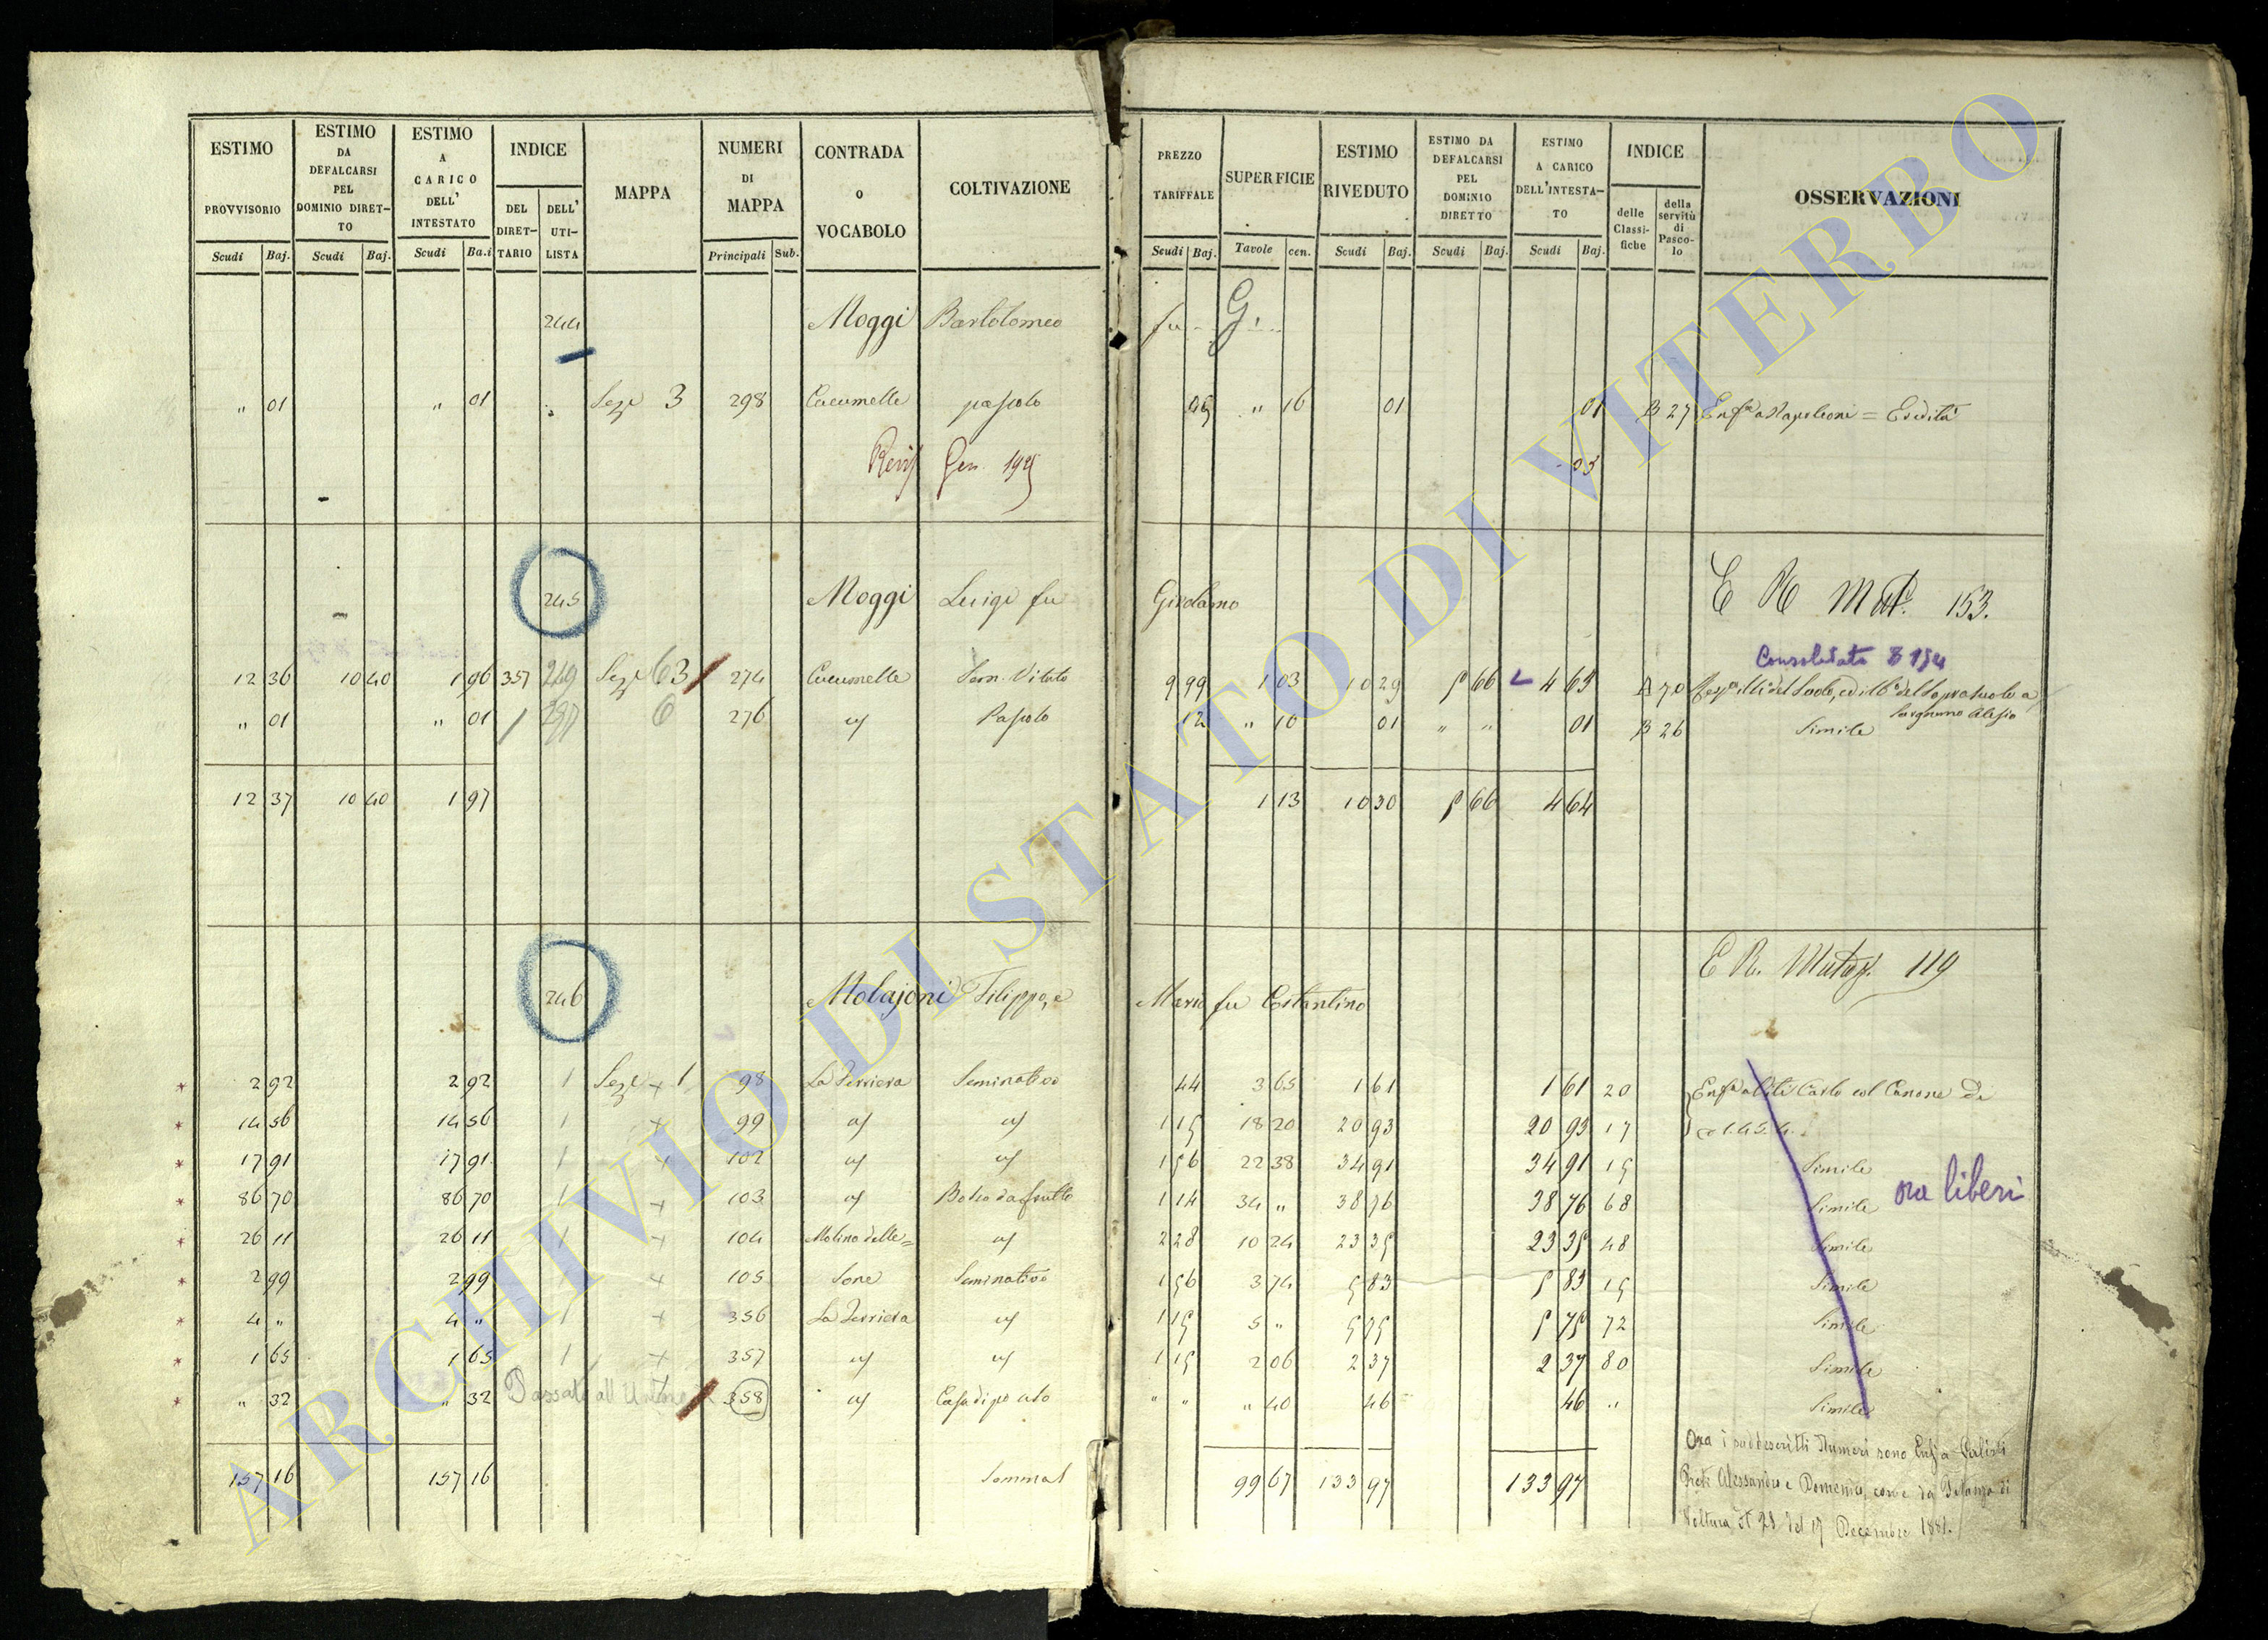 ESTIMO PROVVISORIO Scudi Baj.
ESTIMO DA DEFALCARSI PEL DOMINIO DIRET-TO Scudi Baj.
ESTIMO A CARICO DELL' INTESTATO Scudi Ba.i
INDICE DEL DIRET-TARIO DELL' UTI-LISTA
MAPPA
NUMERI DI MAPPA Principali Sub.
CONTRADA O VOCABOLO
COLTIVAZIONE
PREZZO TARIFFALE Scudi Baj.
SUPERFICIE Tavole cen.
ESTIMO RIVEDUTO Scudi Baj.
ESTIMO DA DEFALCARSI PEL DOMINIO DIRETTO Scudi Baj.
ESTIMO A CARICO DELL'INTESTA-TO Scudi Baj.
INDICE delle Classi-fiche della servitù di Pasco-lo
OSSERVAZIONI
244 Moggi Bartolomeo fu G.
" 01 " 01 Sez.e 3 298 Cucumelle pascolo " 16 01 01 B 27 Enf.a a Napoleoni = Eredità
Gen.
E R Mut. 153.
245 Moggi Luigi fu Girolamo
Consolidato
12 36 10 40 1 96 357 249 Sez.e 63 274 Cucumelle Sem. Vitato 9 99 1 03 10 29 5 66 4 63 70
" 01 " 01 6 276 Pascolo 12 " 10 01 " " 01 B 26 Simile
12 37 10 40 1 97 1 13 10 30 5 66 4 64
E R. Mutaz. 119
246 Molajoni Filippo, e Mario fu Costantino
2 92 2 92 1 Sez.e + 1 98 La Ferriera Seminativo 44 3 65 1 61 1 61 20 Carlo col Canone di
14 56 14 56 1 + 99 1 15 18 20 20 93 20 93 17
17 91 17 91 1 + 102 1 56 22 38 34 91 34 91 15 Simile
86 70 86 70 1 + 103 Bosco da frutto 1 14 34 " 38 76 38 76 68 Simile ora liberi
26 11 26 11 1 + 104 Molino delle= 2 28 10 24 23 35 23 35 48 Simile
2 99 2 99 1 + 105 Seminativo 1 56 3 74 5 83 5 83 15 Simile
4 " 4 " 1 + 356 La Ferriera 1 15 5 " 5 75 5 75 72 Simile
1 65 1 65 1 + 357 1 15 2 06 2 37 2 37 80 Simile
" 32 " 32 Passato all' Urbano 358 " " " 40 46 46 " Simile
157 16 157 16 Somma 99 67 133 97 133 97
Ora i suddescritti Numeri sono Enf.a
Alessandro e Domenico, come da Istanza di
Voltura N. 28 del 17 Decembre
ARCHIVIO DI STATO DI VITERBO